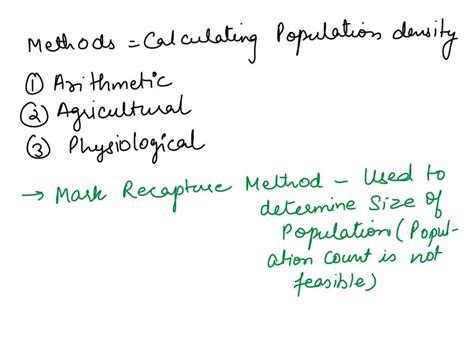 Methods = Calculating Population density
① Arithmetic
② Agricultural
③ Physiological
→ Mark Recapture Method - Used to
determine Size of
Population (Popul-
ation Count is not
feasible)